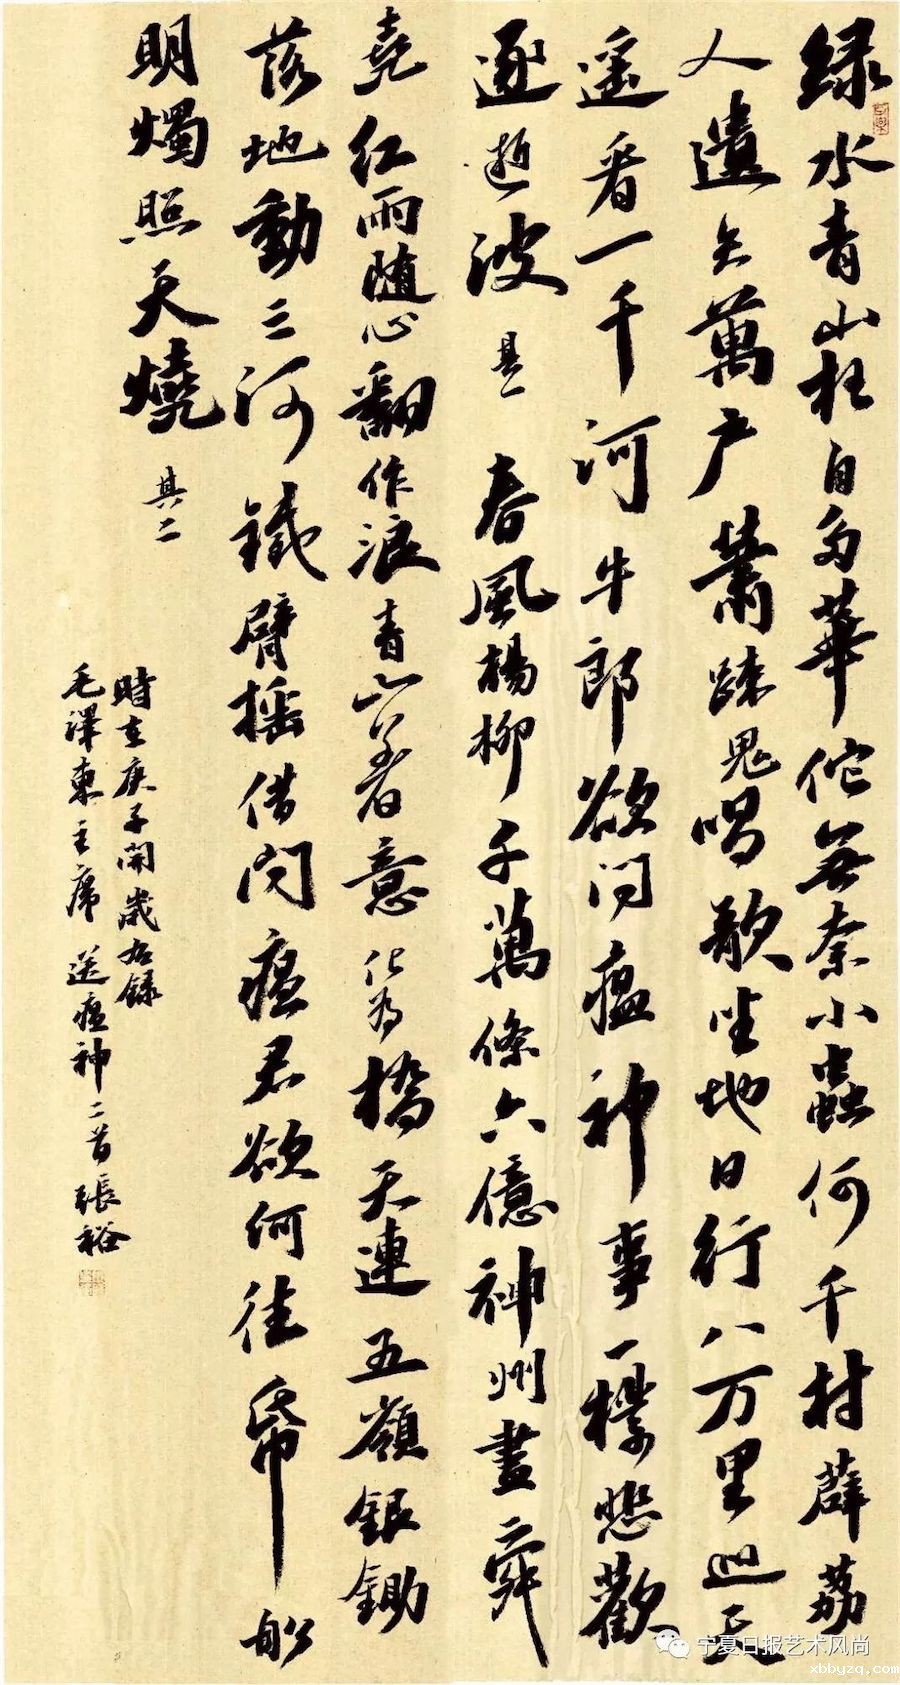 緑水青山枉自多華佗無奈小蟲何千村薜荔
人遺矢萬户蕭疎鬼唱歌坐地日行八万里巡天
遥看一千河牛郎欲问瘟神事一樣悲歡
逐逝波 其一 春風楊柳千萬條六億神州盡舜
堯红雨随心翻作浪青山著意化为橋天連五嶺銀鋤
落地動三河鐵臂摇借问瘟君欲何往帋船
明燭照天燒 其二
時在庚子開歲右録
毛澤東主席送瘟神二首張裕
宁夏日报艺术风尚
xbbyzq.com